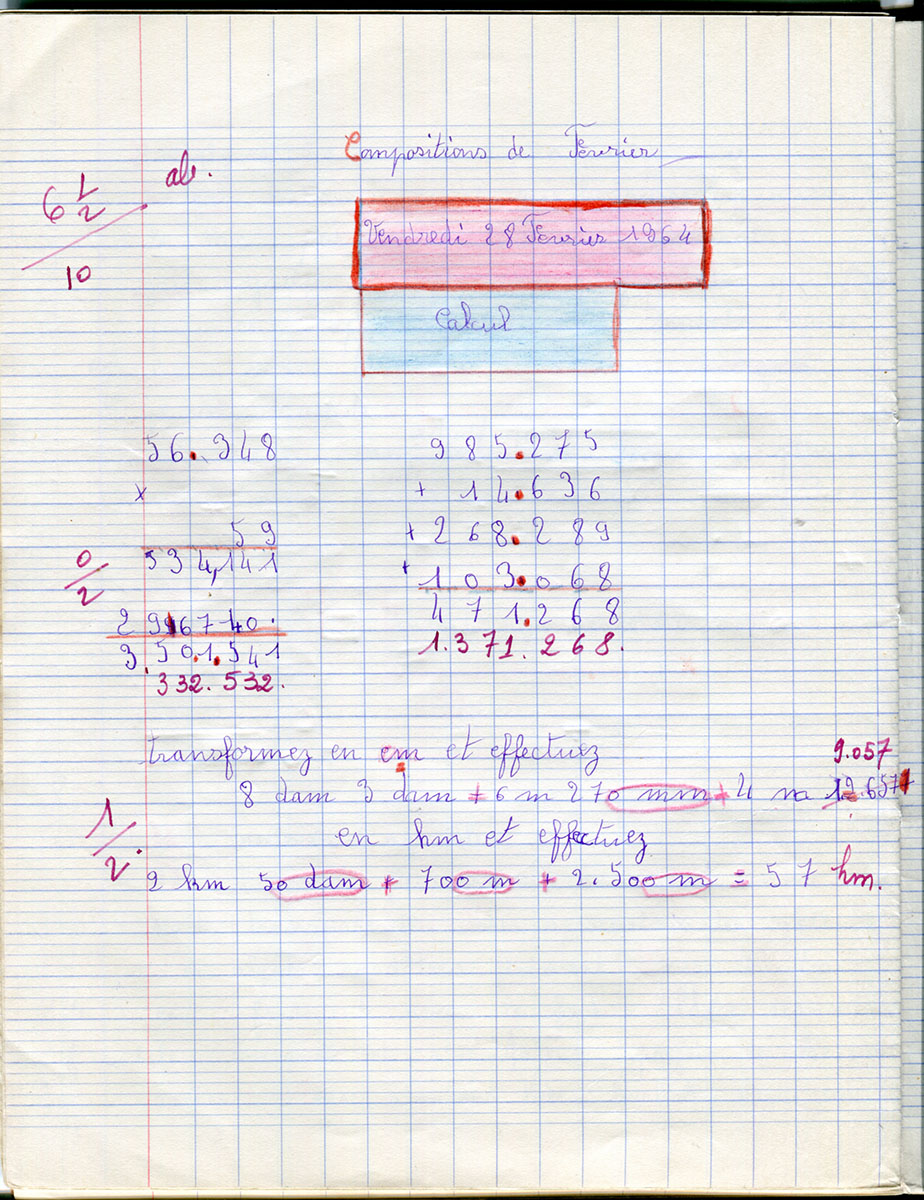 Compositions de Février
abs.
6 1/2
10
Vendredi 28 Février 1964
Calcul
56.348
x
59
534,141
2 9 6740.
3.501.541
332.532.
0/2
985.275
+ 14.636
+ 268.289
+ 103.068
471.268
1.371.268.
transformez en cm et effectuez
9.057
8 dam 3 dam + 6 m 270 mm + 4 m 12.657
en hm et effectuez
1/2.
2 km 50 dam + 700 m + 2.500 m = 57 hm.